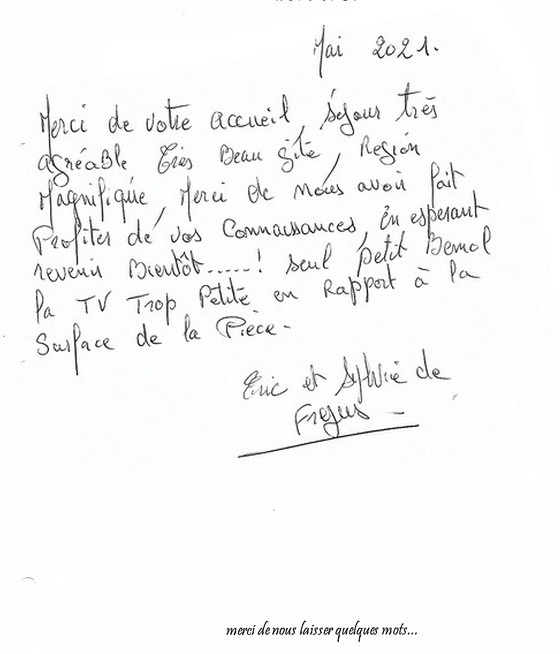 Mai 2021.
Merci de votre accueil, séjour très
agréable Très Beau gîte, Region
Magnifique, Merci de nous avoir fait
Profiter de vos Connaissances, En esperant
revenir Bientôt......! seul petit Bemol
la TV Trop Petite en Rapport à la
Surface de la Pièce-
Eric et Sylvie de
Frejus -
merci de nous laisser quelques mots...